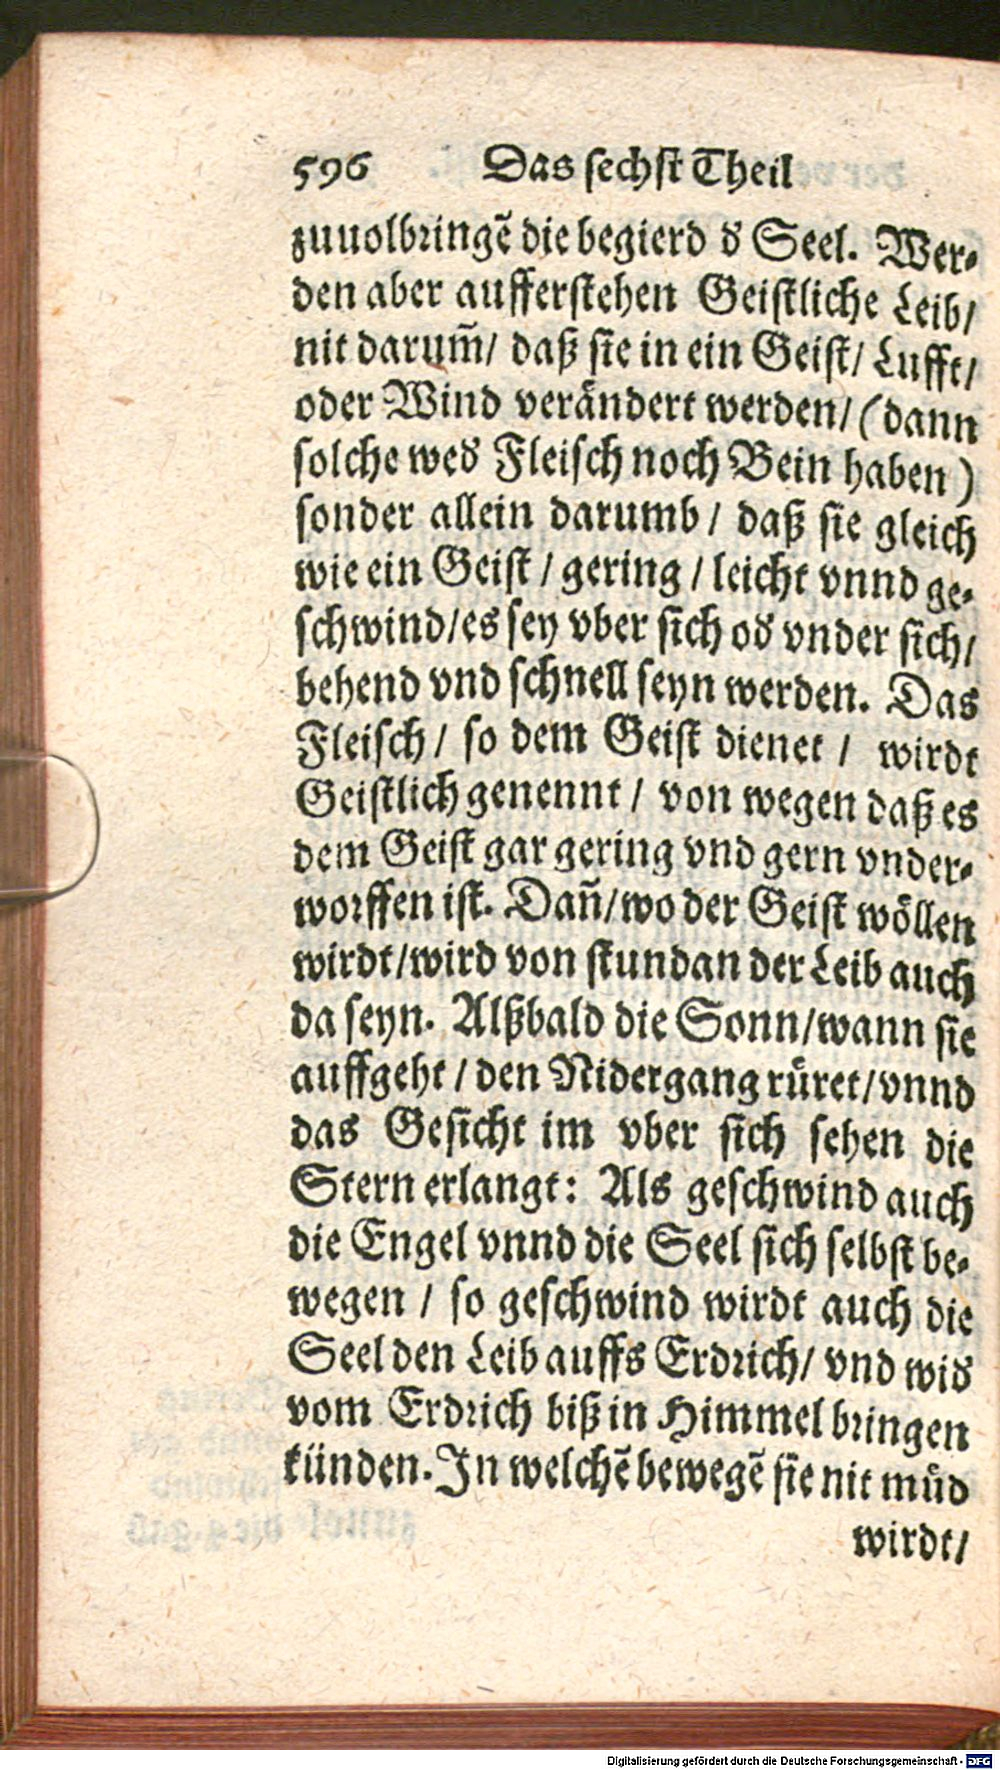 596 Das sechst Theil
zuuolbringẽ die begierd d Seel. Wer-
den aber aufferstehen Geistliche Leib/
nit darum̃/ daß sie in ein Geist/ Lufft/
oder Wind verändert werden/ (dann
solche wed Fleisch noch Bein haben)
sonder allein darumb/ daß sie gleich
wie ein Geist/ gering/ leicht vnnd ge-
schwind/ es sey vber sich od vnder sich/
behend vnd schnell seyn werden. Das
Fleisch/ so dem Geist dienet/ wirdt
Geistlich genennt/ von wegen daß es
dem Geist gar gering vnd gern vnder-
worffen ist. Dañ/ wo der Geist wöllen
wirdt/ wird von stundan der Leib auch
da seyn. Alßbald die Sonn/ wann sie
auffgeht/ den Nidergang rüret/ vnnd
das Gesicht im vber sich sehen die
Stern erlangt: Als geschwind auch
die Engel vnnd die Seel sich selbst be-
wegen/ so geschwind wirdt auch die
Seel den Leib auffs Erdrich/ vnd wid
vom Erdrich biß in Himmel bringen
künden. In welchẽ bewegẽ sie nit müd
wirdt/
Digitalisierung gefördert durch die Deutsche Forschungsgemeinschaft - DFG